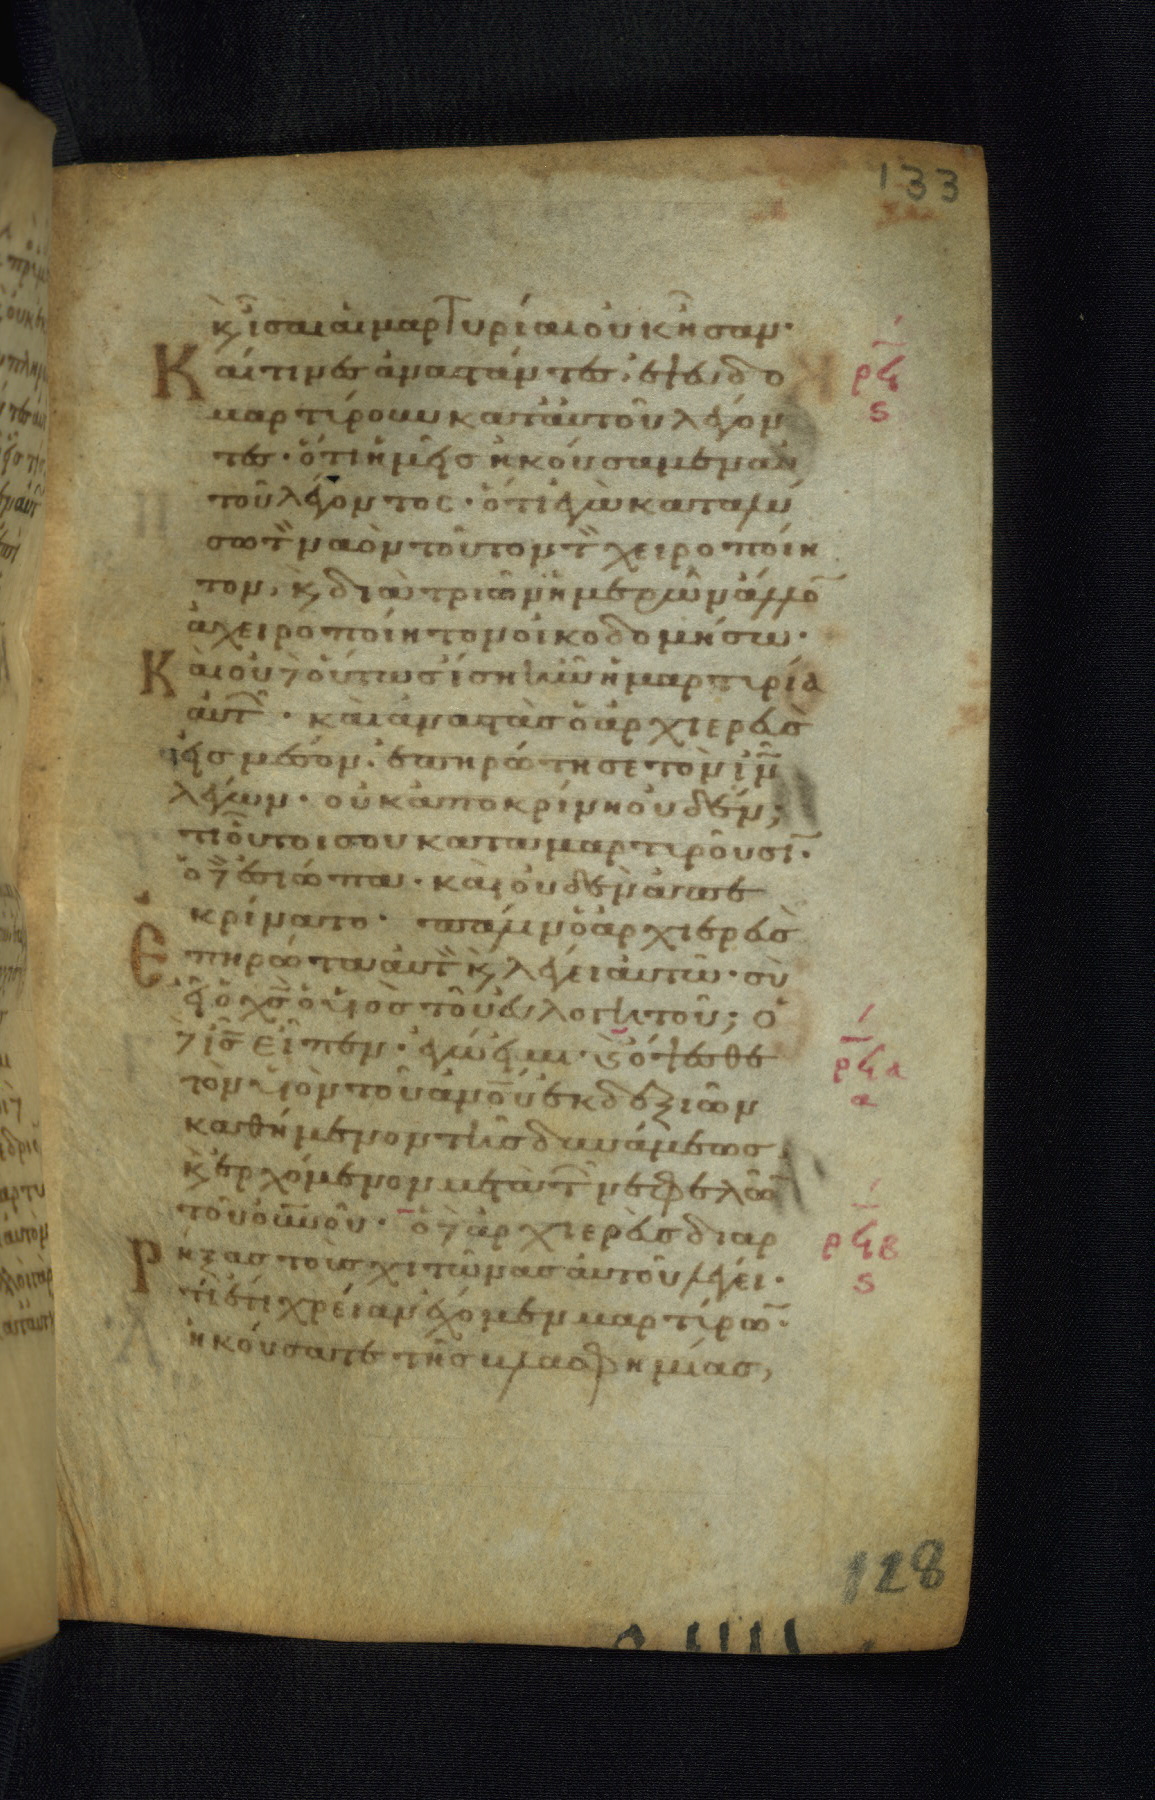 133
κ̀ ἴσαι αἱ μαρτυρίαι οὐκ ἦσαν·
Καί τινες ἀναστάντες, ἐψευδο
μαρτύρουν κατ' αὐτοῦ λέγον
τες· ὅτι ἡμεῖς ἠκούσαμεν αὐ
τοῦ λέγοντος· ὅτι ἐγὼ καταλύ
σω τὸν ναὸν τοῦτον τὸν χειροποίη
τον, κ̀ διὰ τριῶν ἡμερῶν ἄλλο̄
ἀχειροποίητον οἰκοδομήσω·
Καὶ οὐδὲ οὕτως ἴση ἦν ἡ μαρτιρία
αὐτῶν· καὶ ἀναστὰς ὁ ἀρχιερεὺς
εἰς μέσον, ἐπηρώτησε τὸν ιν̄
λέγων· οὐκ ἀποκρίνη οὐδέν;
τί οὗτοί σου καταμαρτιροῦσῑ·
ὁ δὲ ἐσιώπα· καὶ οὐδὲν ἀπε
κρίνατο· πάλιν ὁ ἀρχιερεὺς
Ἐπηρώτα αὐτὸν κ̀ λέγει αὐτῶ· σὺ
εἶ ὁ χς̄ ὁ υἱὸς τοῦ εὐλογητοῦ; ὁ
δὲ ις̄ εἶπεν· ἐγώ εἰμι· κ̀ ὄψεσθε
τὸν υἱὸν τοῦ ανου̅ ἐκ δεξιῶν
καθήμενον τῆς δυνάμεως
κ̀ ἐρχόμενον μετὰ τῶν νεφελῶ̄
τοῦ οὐνοῦ· ὁ δὲ ἀρχιερεὺς διαρ
Ρήξας τοὺς χιτῶνας αὐτοῦ λέγει·
τί ἔτι χρείαν ἔχομεν μαρτύρω̄·
ἠκούσατε τῆς βλασφημίας,
ρϟ
ς
ρϟα
α
ρϟβ
ς
128